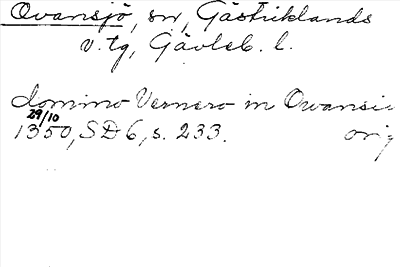 Ovansjö, sn, Gästriklands
v. tg, Gävleb. l.
domino Vernero in Owansi
29/10
1350, SD 6, s. 233. orig